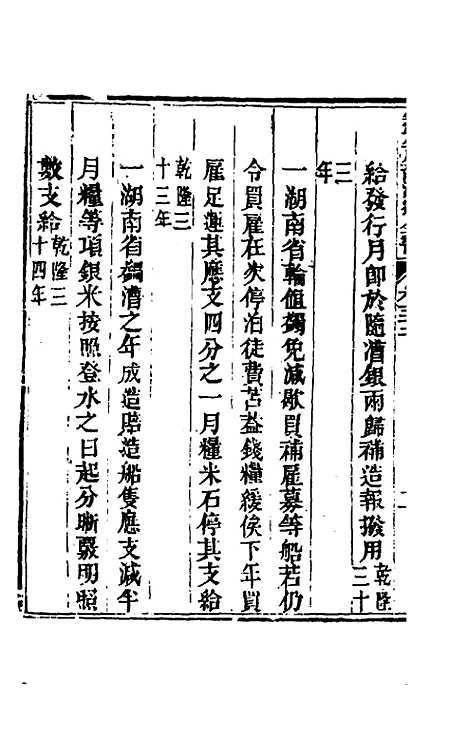 給發行月卽於隨漕銀兩歸補造報撥用乾隆三十
三年
一湖南省輪値蠲免減歇買補雇募等船若仍
令買雇在次停泊徒費苦益錢糧緩俟下年買
雇足運其應支四分之一月糧米石停其支給
乾隆三十三年
一湖南省蠲漕之年成造賠造船隻應支減半
月糧等項銀米按照登水之日起分晰覈明照
數支給乾隆三十四年